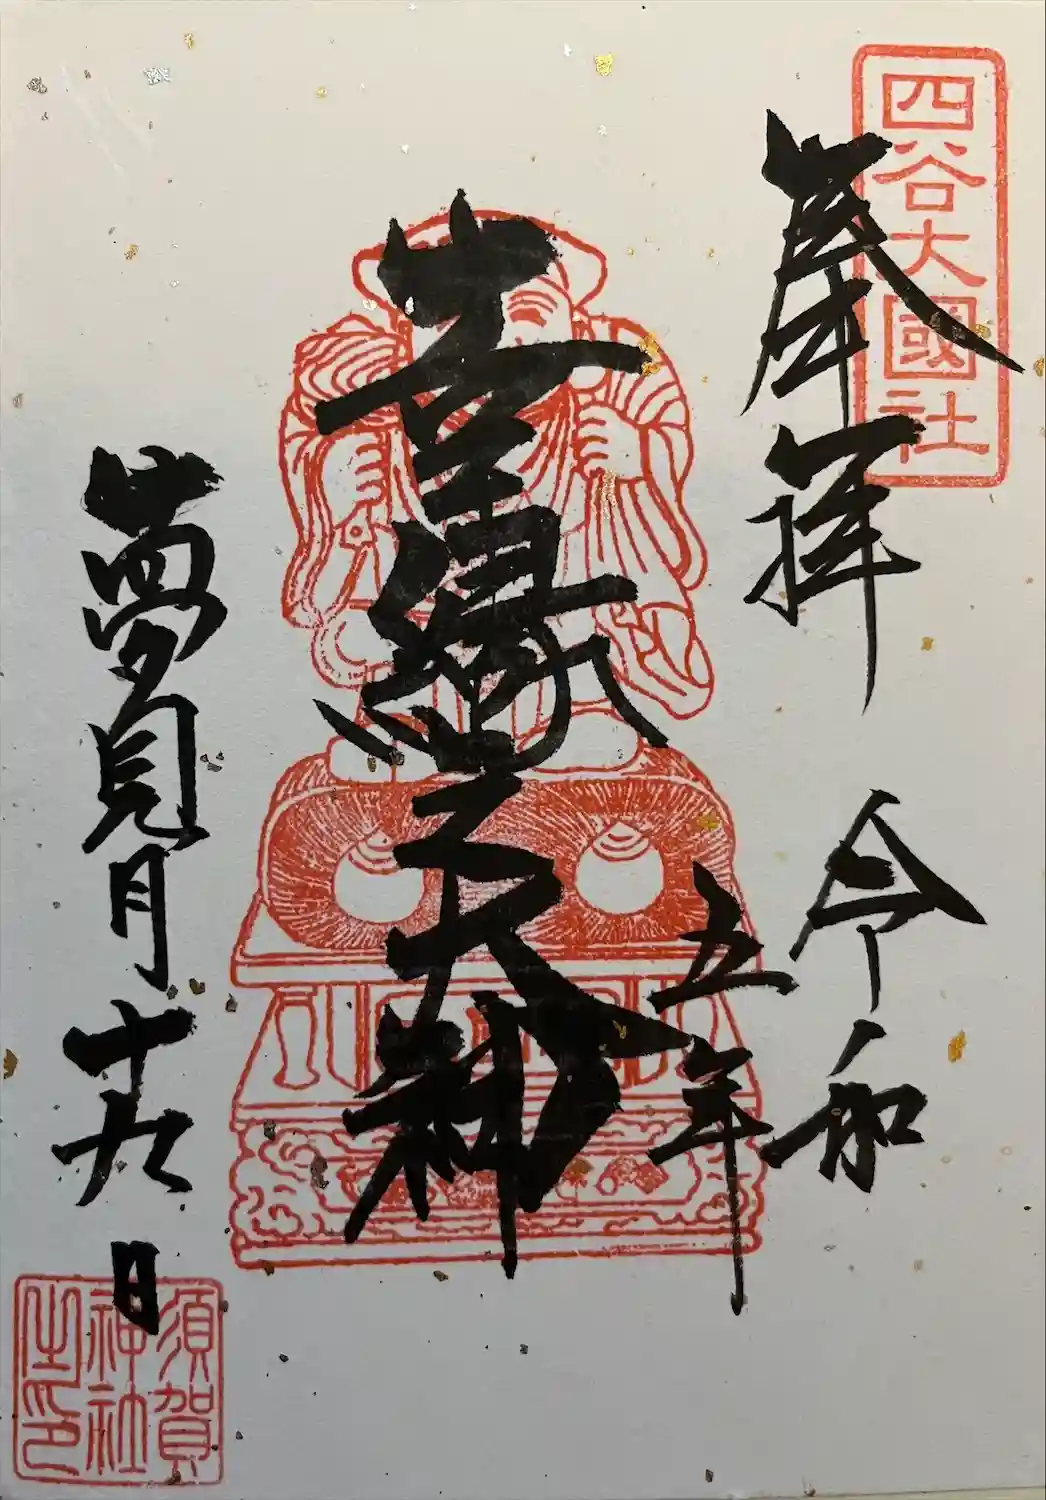 四谷大國社
奉拝
令和
五年
吉縁之大神
夢見月十九日
須賀
神社
之印